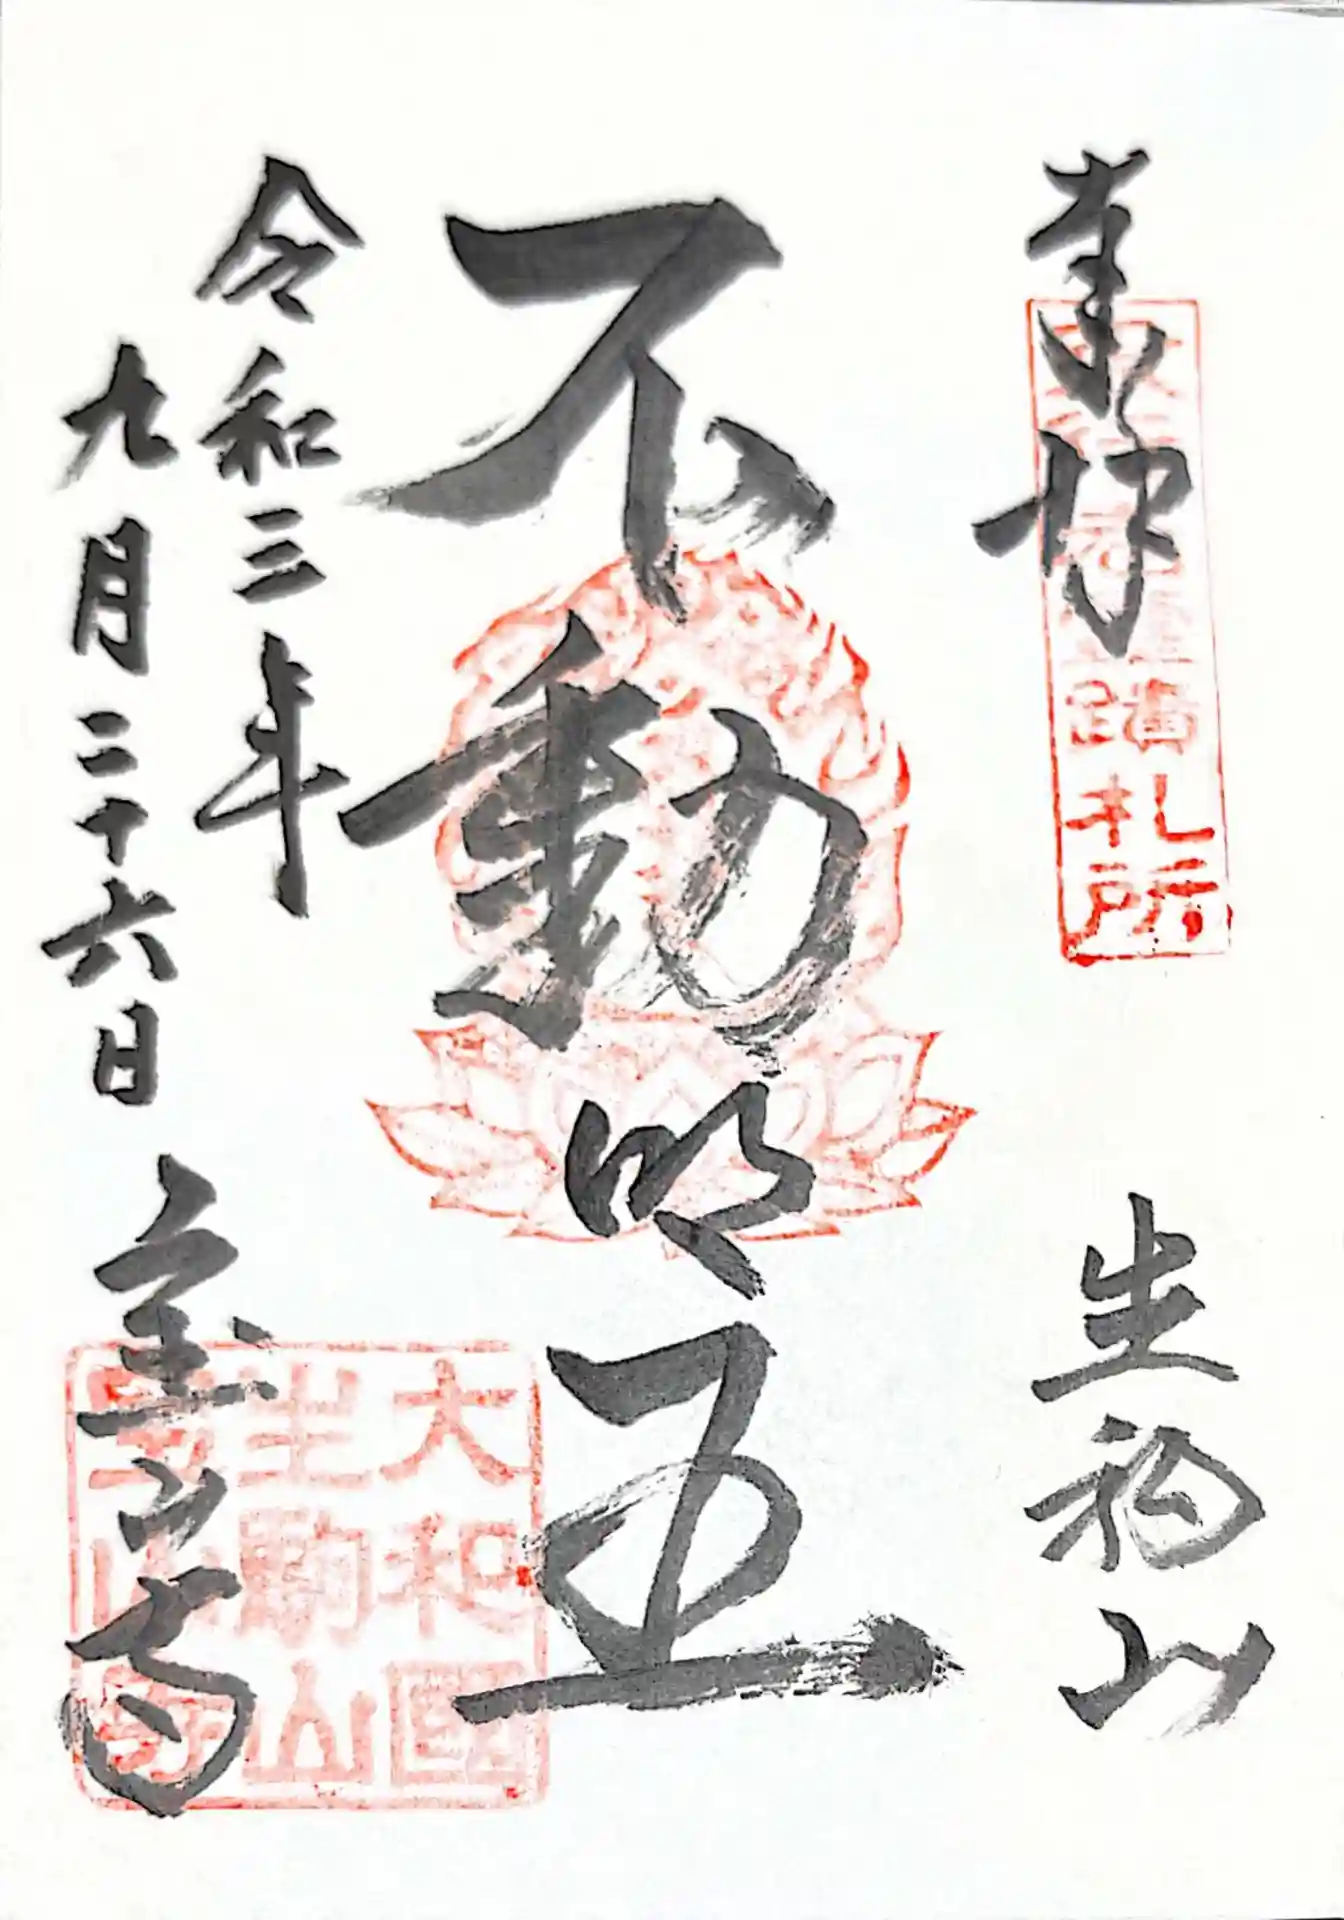 奉拝
役行者霊蹟札所
生駒山
不動明王
令和三年
九月二十六日
宝山寺
大和國
生駒山
宝山寺